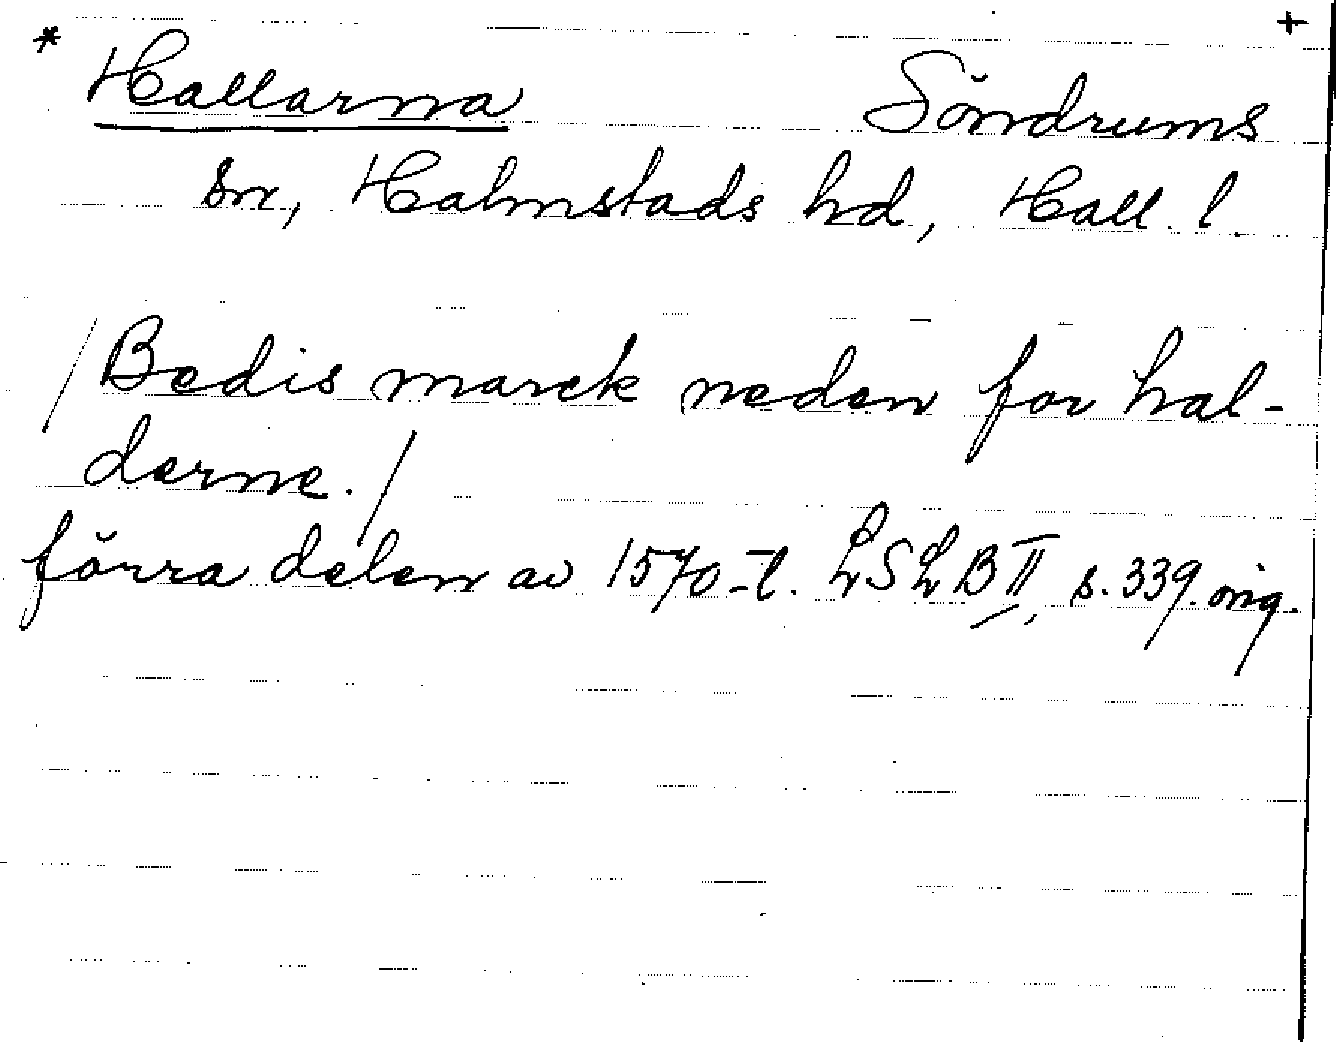 * Hallarna Söndrums +
sn, Halmstads hd, Hall. l.
/Bedis marck neden for hal-
derne./
förra delen av 1570-t. LSLB II, s. 339. orig.